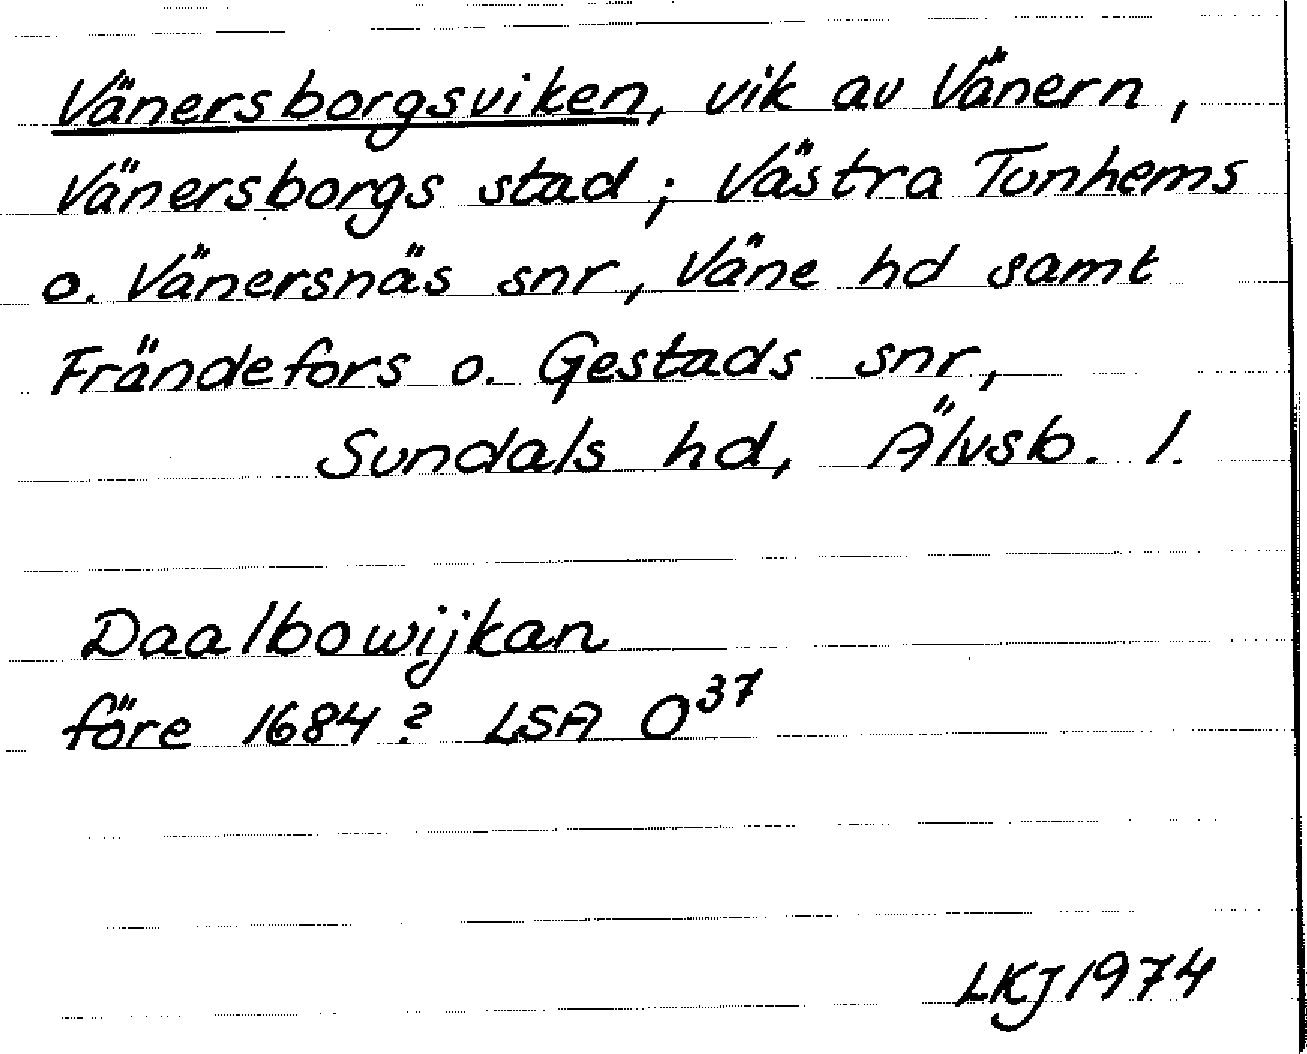 Vänersborgsviken, vik av Vänern,
Vänersborgs stad; Västra Tunhems
o. Vänersnäs snr, Väne hd samt
Frändefors o. Gestads snr,
Sundals hd, Älvsb. l.
Daalbowijkan
före 1684? LSA O³⁷
LKJ 1974